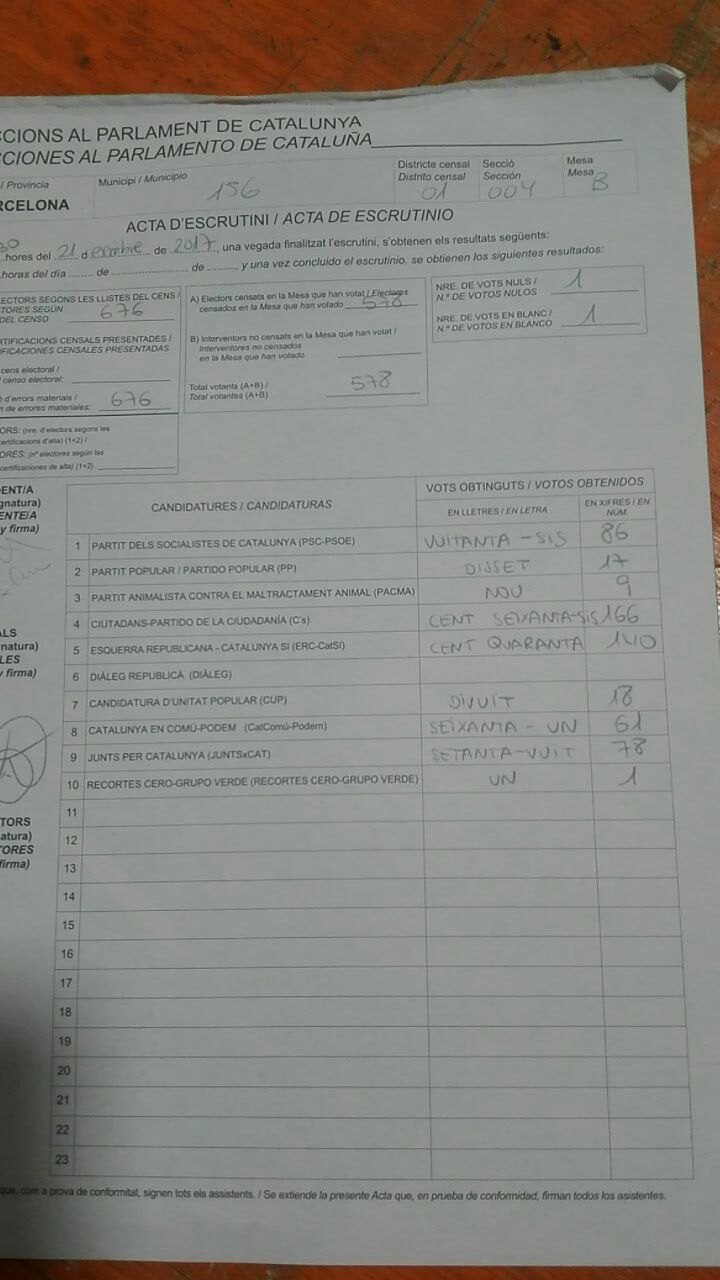 CCIONS AL PARLAMENT DE CATALUNYA
CCIONES AL PARLAMENTO DE CATALUÑA
/ Provincia
RCELONA
Municipi / Municipio
156
Districte censal
Distrito censal
01
Secció
Sección
004
Mesa
Mesa
B
ACTA D'ESCRUTINI / ACTA DE ESCRUTINIO
hores del 21 d de 2017, una vegada finalitzat l'escrutini, s'obtenen els resultats següents:
horas del día ........ de .......................... de ........., y una vez concluido el escrutinio, se obtienen los siguientes resultados:
ECTORS SEGONS LES LLISTES DEL CENS /
TORES SEGÚN
DEL CENSO
676
RTIFICACIONS CENSALS PRESENTADES /
IFICACIONES CENSALES PRESENTADAS
cens electoral /
censo electoral:
d'errors materials /
n de errores materiales:
676
ORS: (nre. d'electors segons les
certificacions d'alta) (1+2) /
ORES: (nº electores según las
certificaciones de alta) (1+2)
A) Electors censats en la Mesa que han votat / Electores
censados en la Mesa que han votado 578
B) Interventors no censats en la Mesa que han votat /
Interventores no censados
en la Mesa que han votado
Total votants (A+B) /
Total votantes (A+B)
578
NRE. DE VOTS NULS /
N.º DE VOTOS NULOS
1
NRE. DE VOTS EN BLANC /
N.º DE VOTOS EN BLANCO
1
DENT/A
gnatura)
ENTE/A
y firma)
ALS
natura)
LES
y firma)
TORS
atura)
TORES
firma)
CANDIDATURES / CANDIDATURAS
VOTS OBTINGUTS / VOTOS OBTENIDOS
EN LLETRES / EN LETRA
EN XIFRES / EN
NÚM.
1 PARTIT DELS SOCIALISTES DE CATALUNYA (PSC-PSOE) VUITANTA-SIS 86
2 PARTIT POPULAR / PARTIDO POPULAR (PP) DISSET 17
3 PARTIT ANIMALISTA CONTRA EL MALTRACTAMENT ANIMAL (PACMA) NOU 9
4 CIUTADANS-PARTIDO DE LA CIUDADANÍA (C's) CENT SEIXANTA-SIS 166
5 ESQUERRA REPUBLICANA - CATALUNYA SI (ERC-CatSI) CENT QUARANTA 140
6 DIÀLEG REPUBLICÀ (DIÀLEG)
7 CANDIDATURA D'UNITAT POPULAR (CUP) DIVUIT 18
8 CATALUNYA EN COMÚ-PODEM (CatComú-Podem) SEIXANTA-UN 61
9 JUNTS PER CATALUNYA (JUNTSxCAT) SETANTA-VUIT 78
10 RECORTES CERO-GRUPO VERDE (RECORTES CERO-GRUPO VERDE) UN 1
11
12
13
14
15
16
17
18
19
20
21
22
23
que, com a prova de conformitat, signen tots els assistents. / Se extiende la presente Acta que, en prueba de conformidad, firman todos los asistentes.